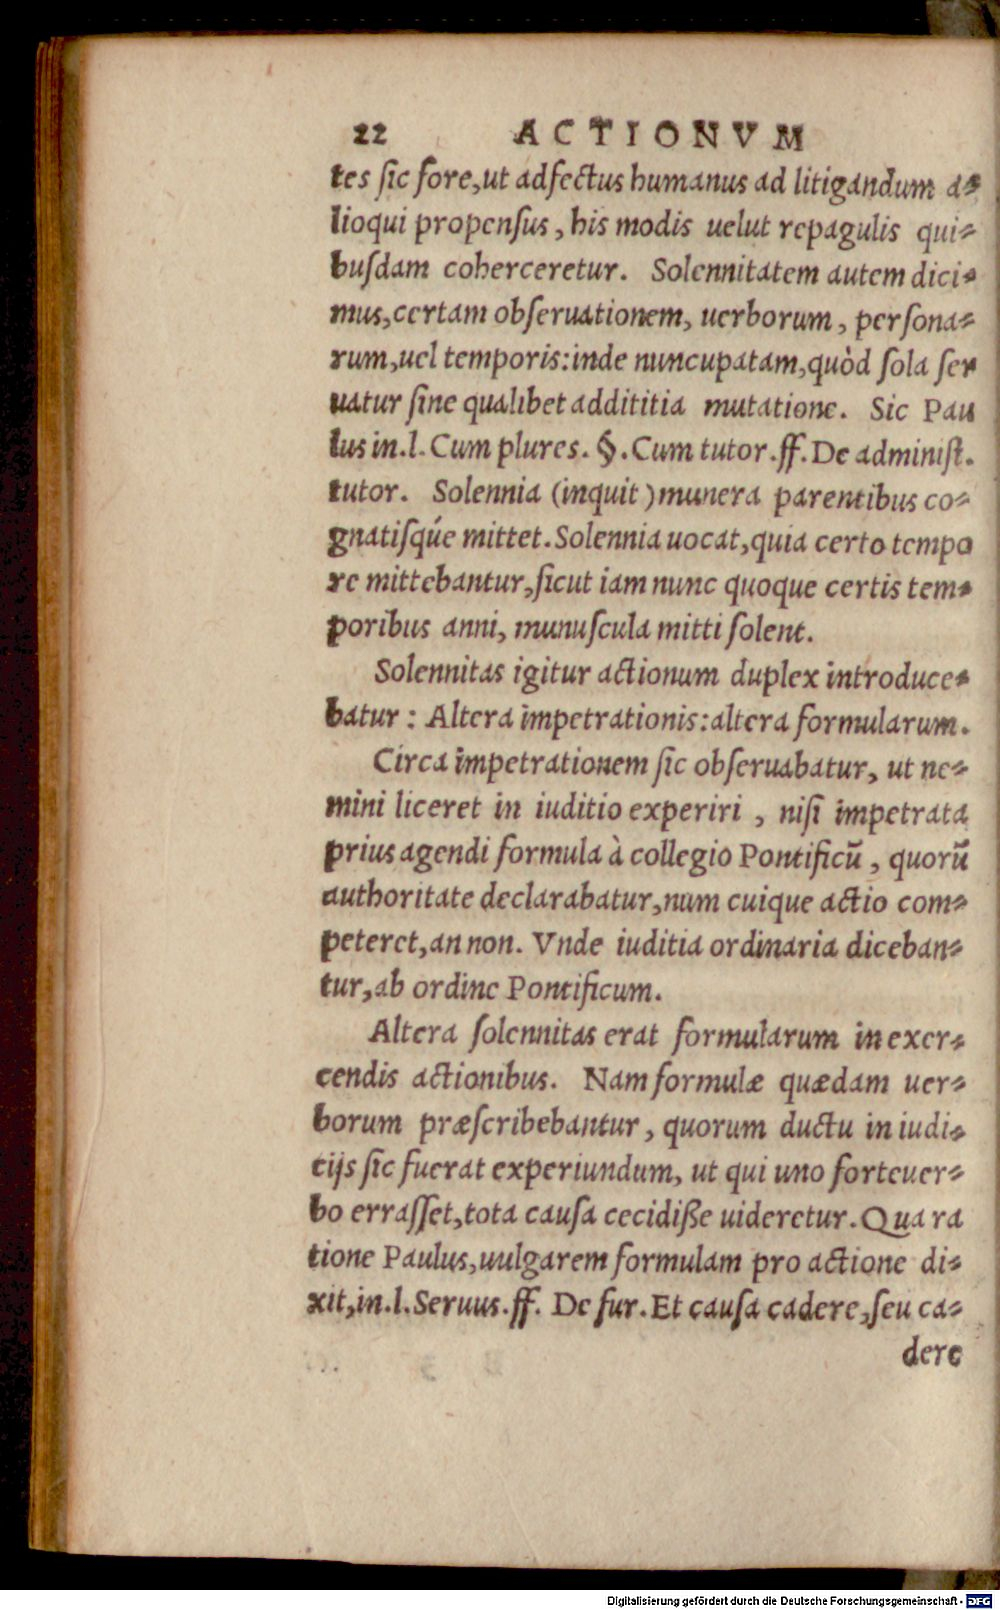 22 ACTIONVM
tes ſic fore,ut adfectus humanus ad litigandum a⸗
lioqui propenſus, his modis uelut repagulis qui⸗
buſdam coherceretur. Solennitatem autem dici⸗
mus,certam obſeruationem, uerborum, perſona⸗
rum,uel temporis:inde nuncupatam,quòd ſola ſer
uatur ſine qualibet addititia mutatione. Sic Pau
lus in.l.Cum plures.§.Cum tutor.ff.De adminiſt.
tutor. Solennia (inquit) munera parentibus co⸗
gnatiſqúe mittet.Solennia uocat,quia certo tempo
re mittebantur,ſicut iam nunc quoque certis tem⸗
poribus anni, munuſcula mitti ſolent.
Solennitas igitur actionum duplex introduce⸗
batur: Altera impetrationis:altera formularum.
Circa impetrationem ſic obſeruabatur, ut ne⸗
mini liceret in iuditio experiri, niſi impetrata
prius agendi formula à collegio Pontificũ, quorũ
authoritate declarabatur,num cuique actio com⸗
peteret,an non. Vnde iuditia ordinaria diceban⸗
tur,ab ordine Pontificum.
Altera ſolennitas erat formularum in exer⸗
cendis actionibus. Nam formulæ quædam uer⸗
borum præſcribebantur, quorum ductu in iudi⸗
cijs ſic fuerat experiundum, ut qui uno forte uer⸗
bo erraſſet,tota cauſa cecidiße uideretur.Qua ra
tione Paulus,uulgarem formulam pro actione di⸗
xit,in.l.Seruus.ff. De fur.Et cauſa cadere,ſeu ca⸗
dere
Digitalisierung gefördert durch die Deutsche Forschungsgemeinschaft - DFG